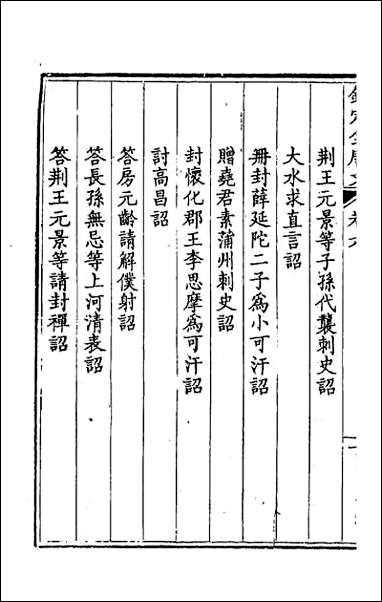 欽定全唐文 卷六 一
荆王元景等子孫代襲刺史詔
大水求直言詔
冊封薛延陀二子爲小可汗詔
贈堯君素蒲州刺史詔
封懷化郡王李思摩爲可汗詔
討高昌詔
答房元齡請解僕射詔
答長孫無忌等上河清表詔
答荆王元景等請封禪詔